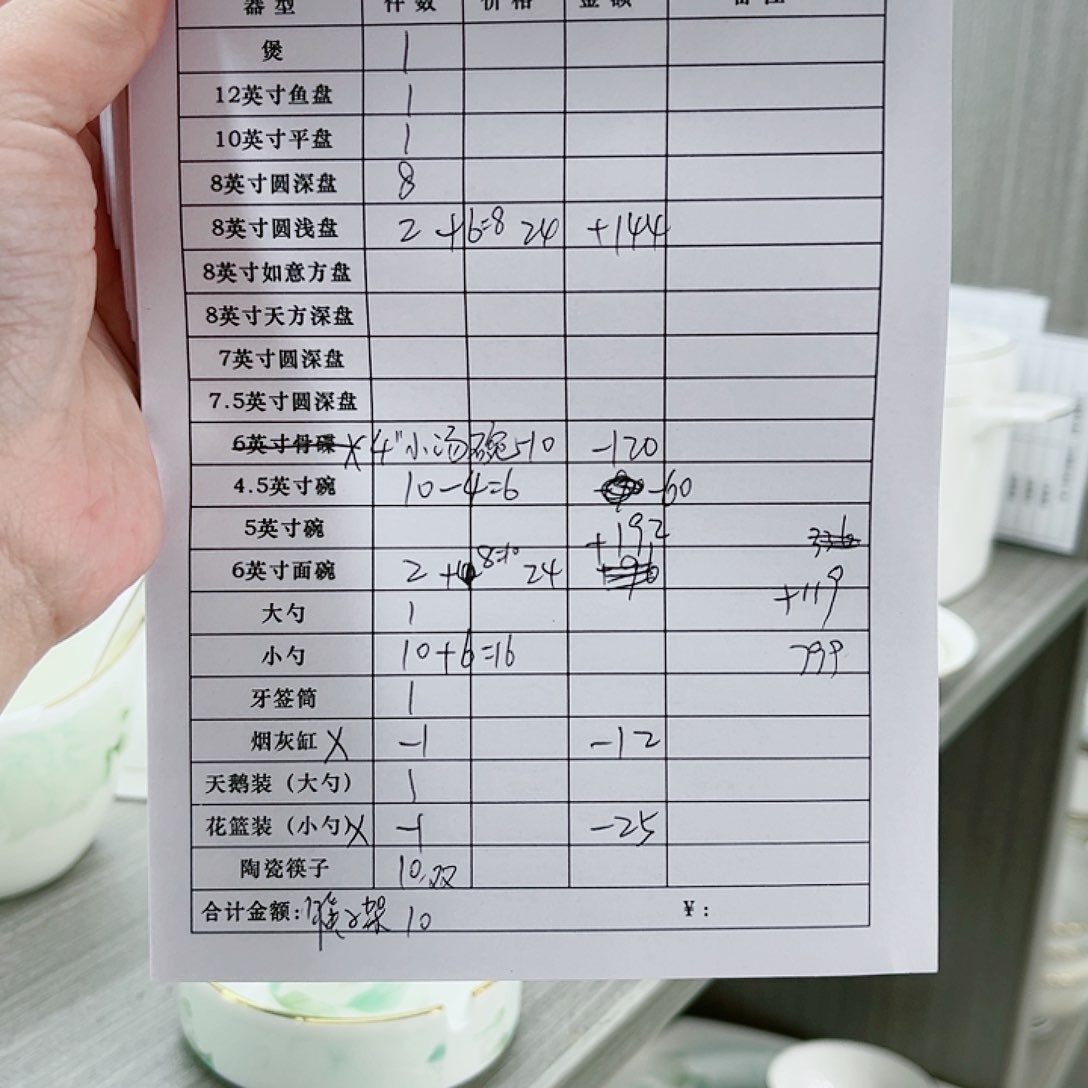 器型 件数 价格 金额 备注
煲 1
12英寸鱼盘 1
10英寸平盘 1
8英寸圆深盘 8
8英寸圆浅盘 2 +6=8 24 +144
8英寸如意方盘
8英寸天方深盘
7英寸圆深盘
7.5英寸圆深盘
6英寸骨碟 X 4"小汤碗-10 -120
4.5英寸碗 10-4=6 -60
5英寸碗 +192 336
6英寸面碗 2 + 8=10 24 +196
+119
大勺 1
小勺 10+6=16 799
牙签筒 1
烟灰缸 X -1 -12
天鹅装（大勺） 1
花篮装（小勺） X -1 -25
陶瓷筷子 10双
合计金额: 筷子架 10 ¥: